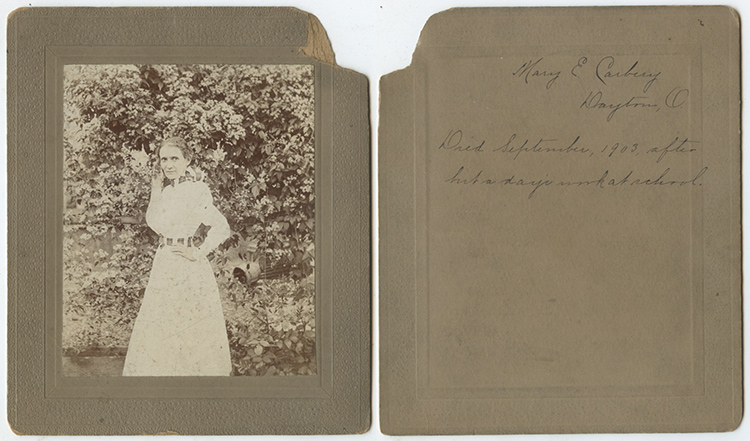 Mary E Carbery
Dayton, O
Died September, 1903, after
but a days work at school.